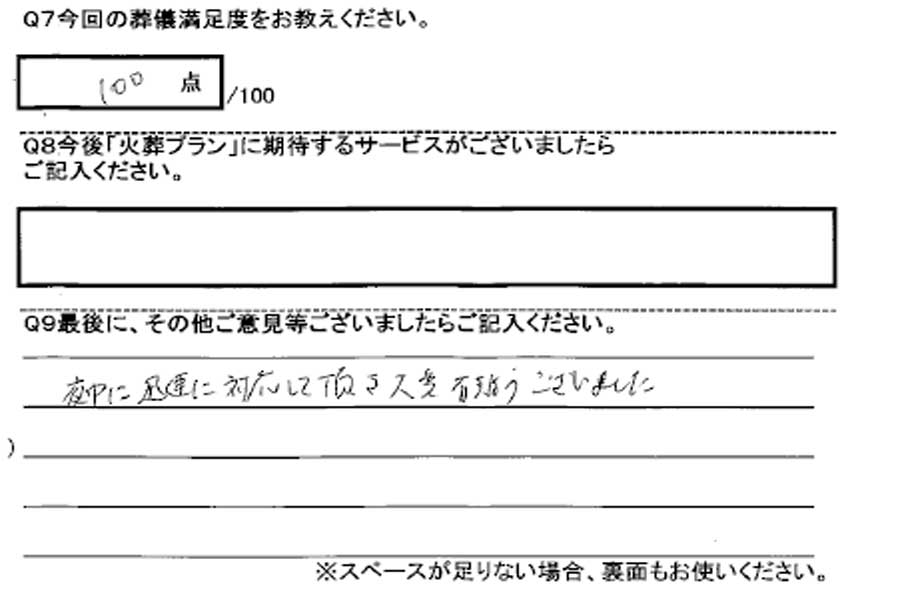 Q7今回の葬儀満足度をお教えください。
100 点 /100
Q8今後「火葬プラン」に期待するサービスがございましたら
ご記入ください。
Q9最後に、その他ご意見等ございましたらご記入ください。
夜中に迅速に対応して頂き大変有難うございました
)
※スペースが足りない場合、裏面もお使いください。